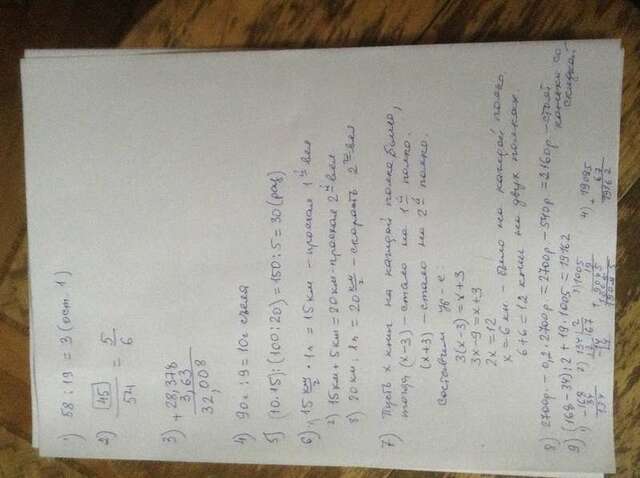 1) 58 : 19 = 3 (ост. 1)
2) 45/54 = 5/6
3) + 28,378
3,63
32,008
4) 90г : 9 = 10г съела
5) (10·15):(100:20) = 150:5 = 30 (раз)
6) 1) 15 км/ч · 1ч = 15 км – проехал 1й вел
2) 15 км + 5 км = 20 км – проехал 2й вел
3) 20 км : 1ч = 20 км/ч – скорость 2го вел
7) Пусть x книг на каждой полке было,
тогда (x-3) – стало на 1й полке.
(x+3) – стало на 2й полке.
Составим ур-е:
3(x-3) = x+3
3x-9 = x+3
2x = 12
x = 6 кн. – было на каждой полке
6+6 = 12 книг на двух полках.
8) 2700р. – 0,2·2700р = 2700р – 540р = 2160р – стоят
коньки со
скидкой
9) (168-34):2 + 19·1005 = 19162
1) -168 2) 134 2 3) 1005 4) 19095
34 12 67 19 + 67
134 -14 + 9045 19162
14 1005
19095